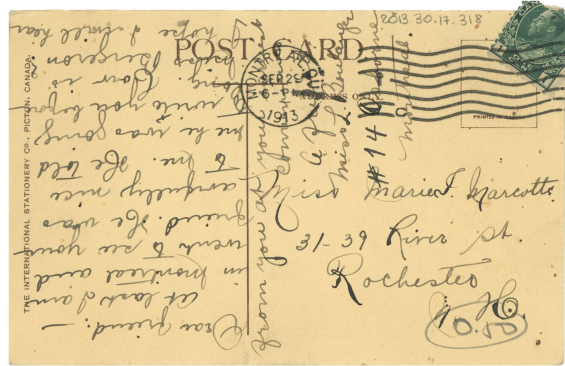 2013.30.17.318
POST CARD
MONTREAL
SEP 29
6-PM
1913
ADDRESS ONLY
PRINTED IN
THE INTERNATIONAL STATIONERY CO., PICTON, CANADA.
Dear friend:-
At last I am
in Montreal and
went to see your
friend. He was
awfully nice
to me. He told
me he was going
to write you before
long. Your is
Miss Bergeron
I hope I will hear
from you at your
Miss L. Beranger
#14
Montreal
Miss Marie T. Marcotte
31-39 River St.
Rochester
N. H.
0.50